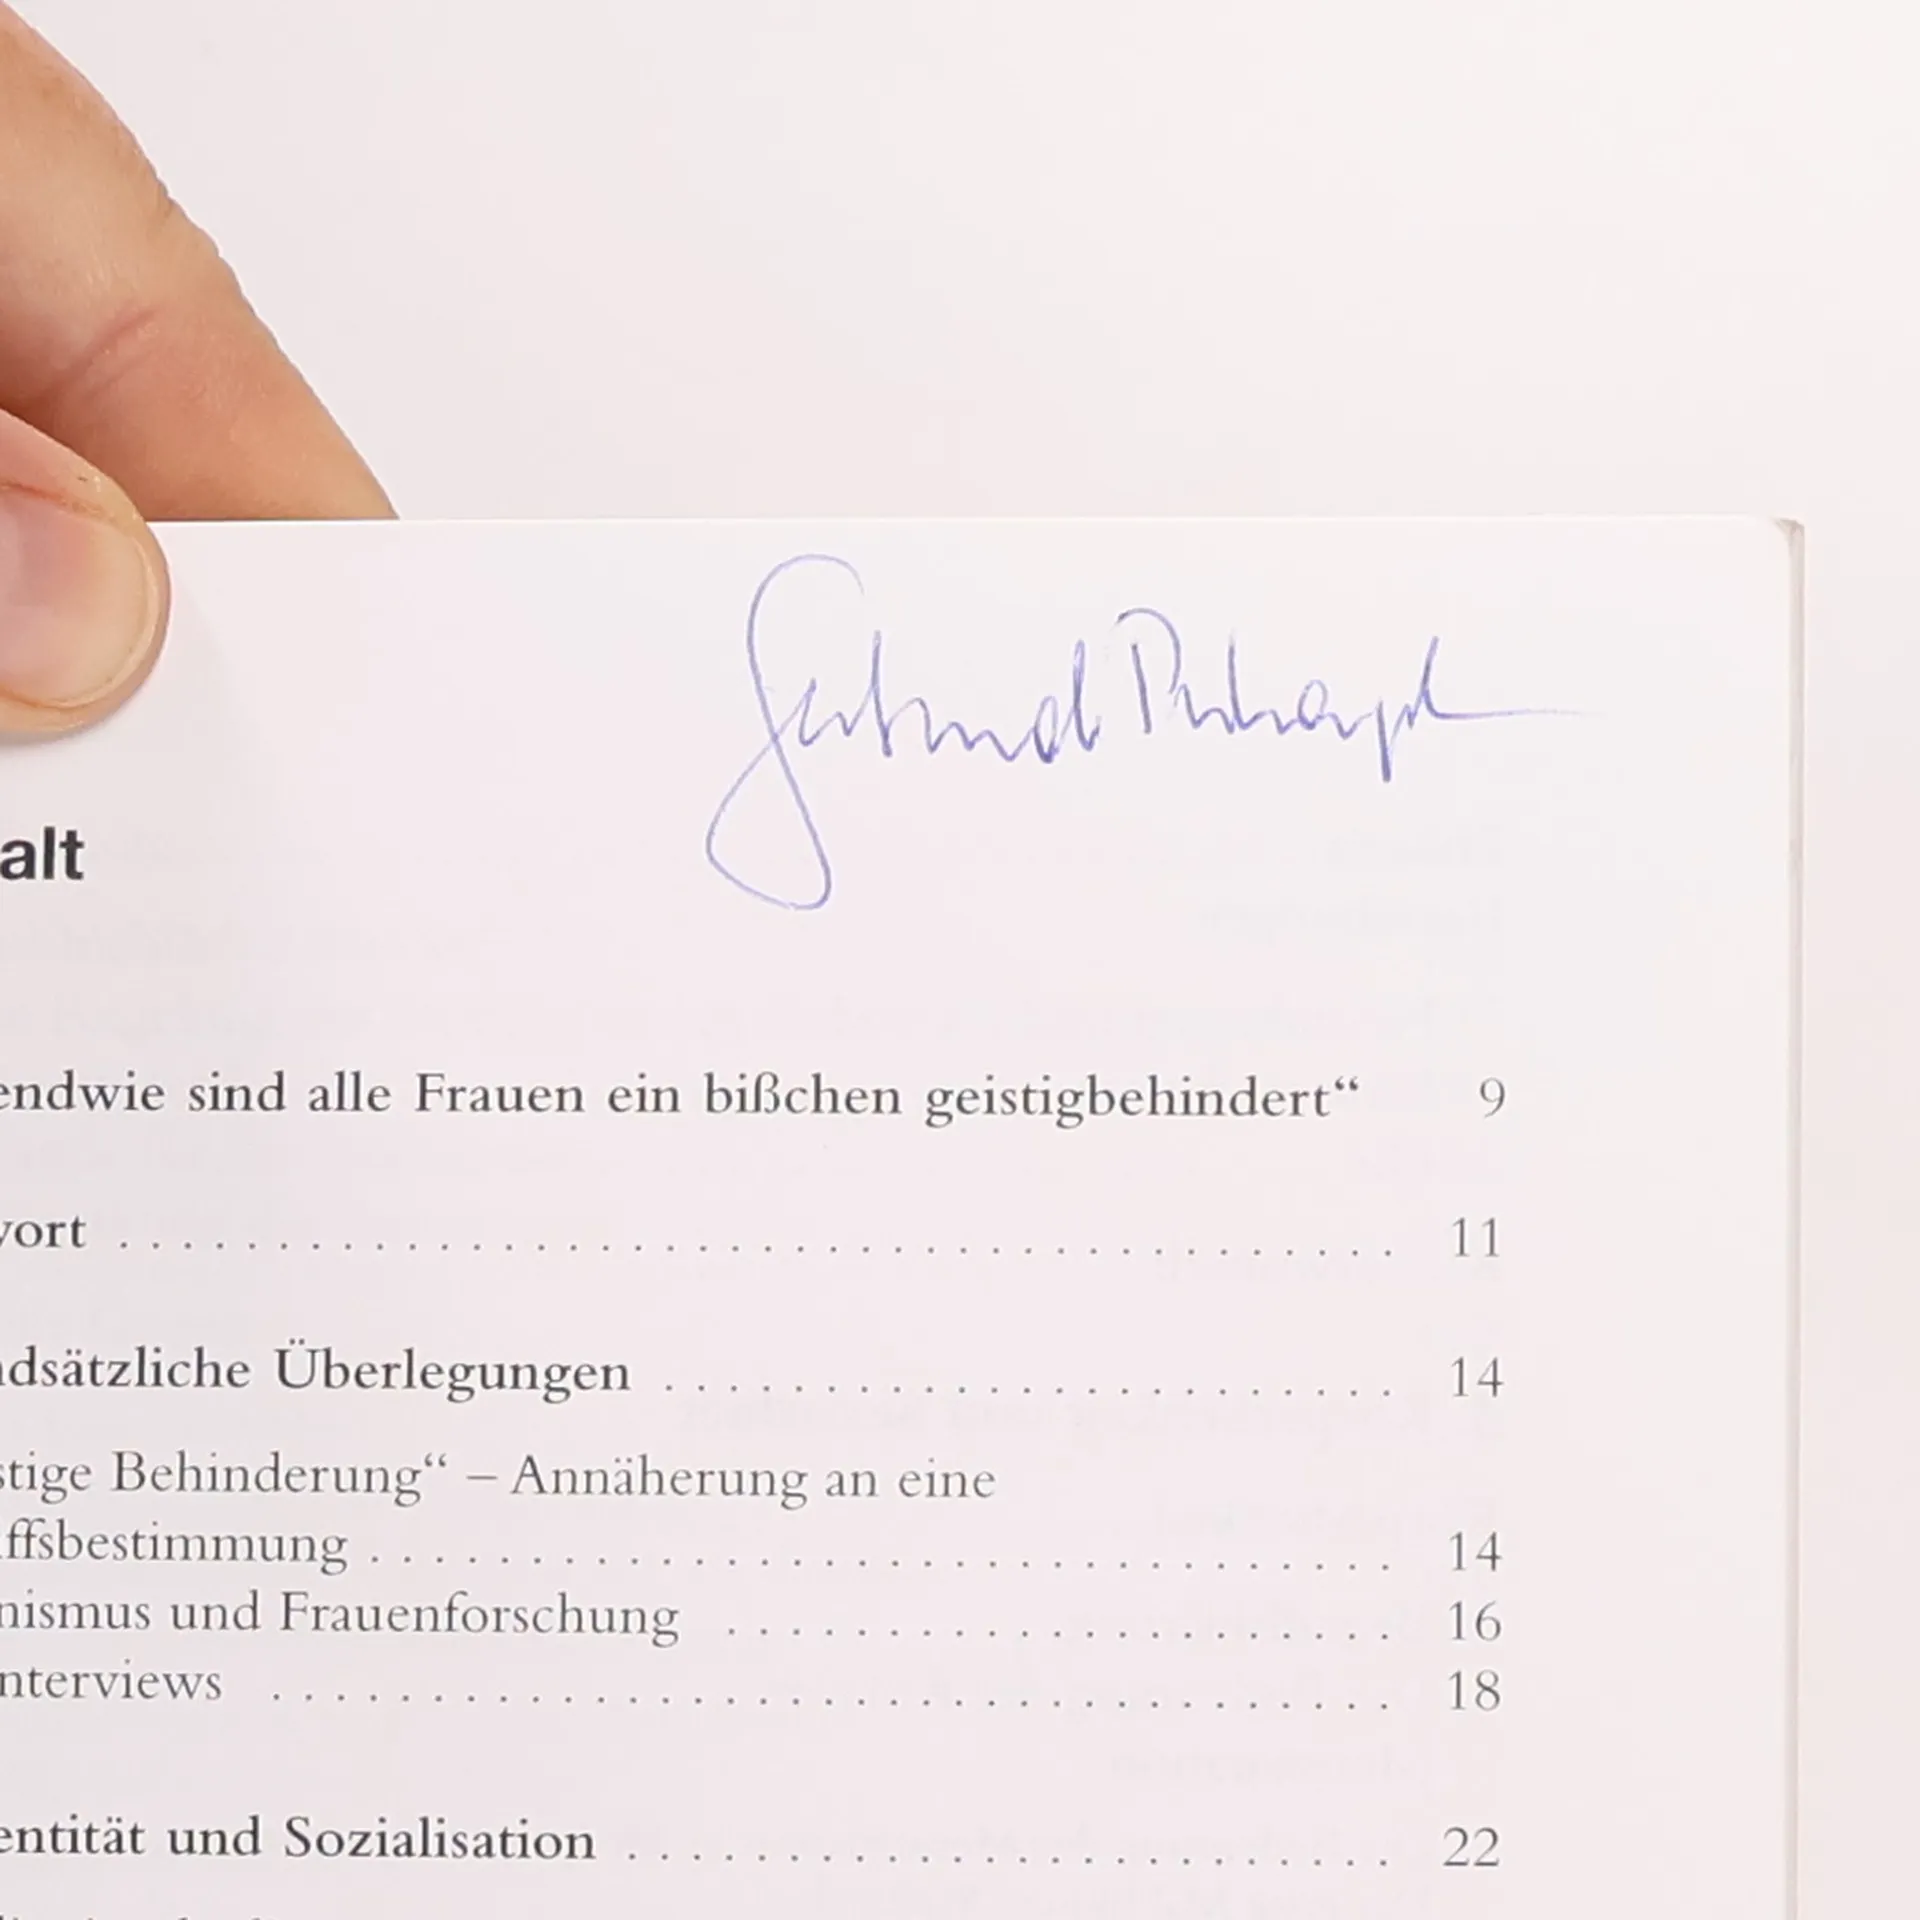 Gertrud
alt
endwie sind alle Frauen ein bißchen geistigbehindert“ 9
vort . . . . . . . . . . . . . . . . . . . . . . . . . . . . . . . . . . . . . . . . 11
dsätzliche Überlegungen . . . . . . . . . . . . . . . . . . . . . . . 14
stige Behinderung“ – Annäherung an eine
ffsbestimmung . . . . . . . . . . . . . . . . . . . . . . . . . . . . . . . . 14
nismus und Frauenforschung . . . . . . . . . . . . . . . . . . . . . 16
nterviews . . . . . . . . . . . . . . . . . . . . . . . . . . . . . . . . . . . 18
entität und Sozialisation . . . . . . . . . . . . . . . . . . . . . . . . 22